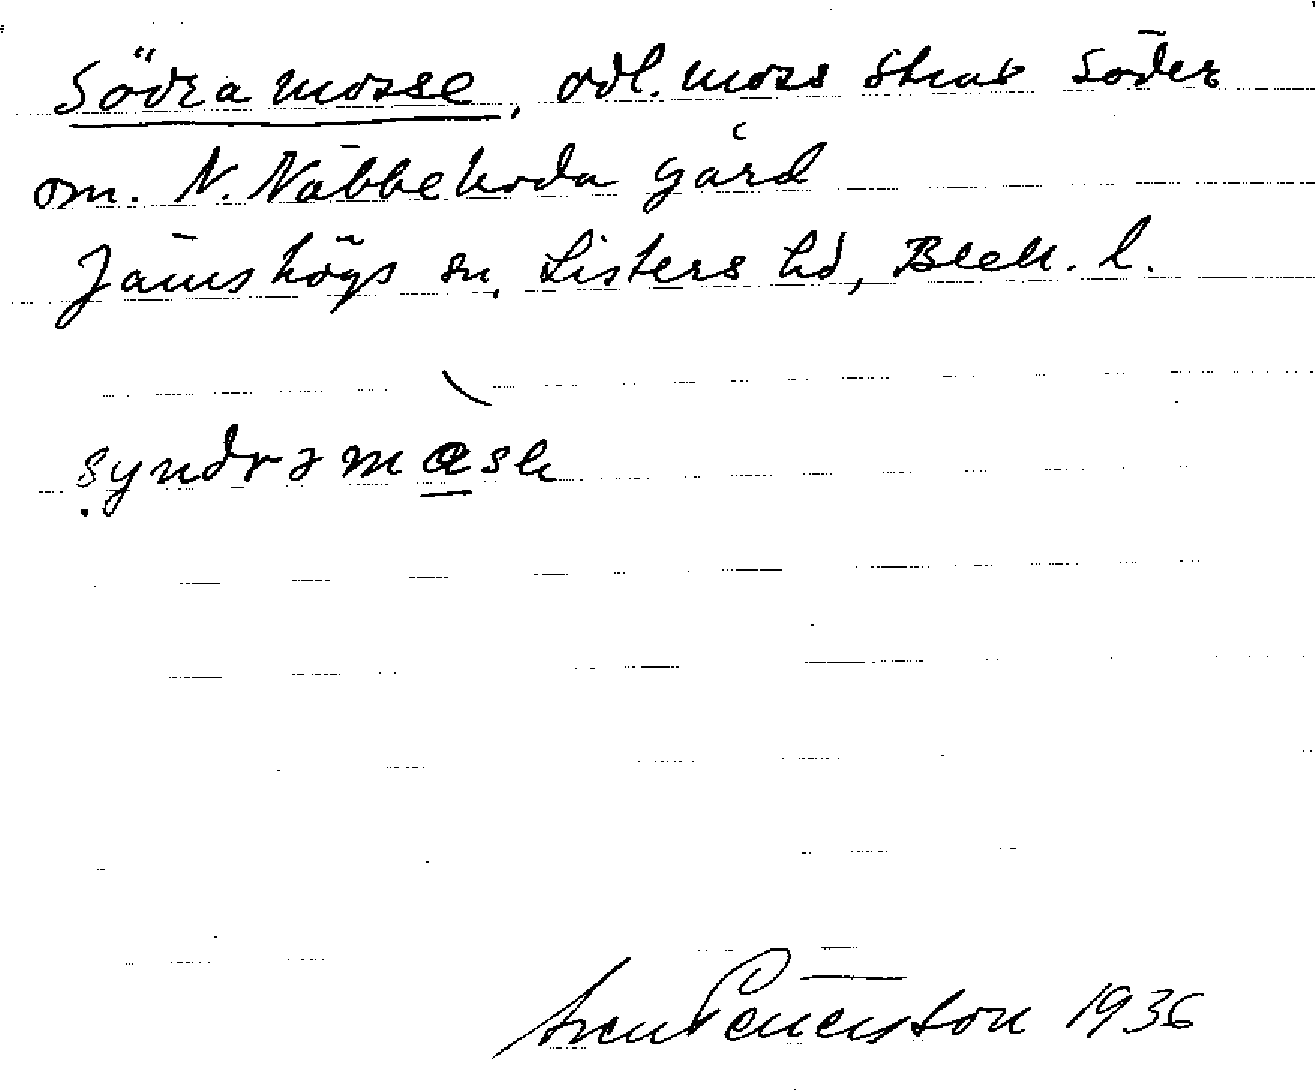 Södra mosse, odl. moss strax söder
om. N. Näbbeboda gård
Jämshögs sn, Listers hd, Blek. l.
syndrə mose
Sven Benson 1936